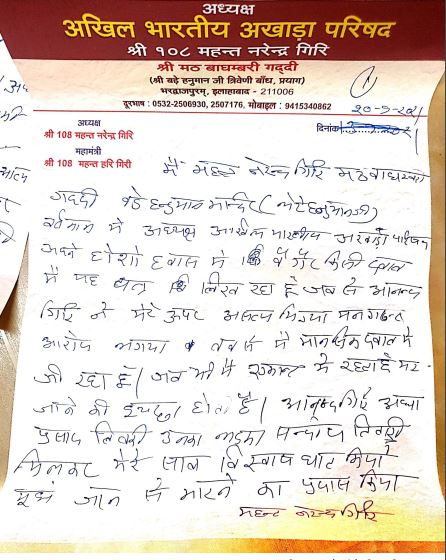 अध्यक्ष
अखिल भारतीय अखाड़ा परिषद
श्री १०८ महन्त नरेन्द्र गिरि
श्री मठ बाघम्बरी गद्दी
(श्री बड़े हनुमान जी त्रिवेणी बाँध, प्रयाग)
भरद्वाजपुरम्, इलाहाबाद - 211006
दूरभाष : 0532-2506930, 2507176, मोबाइल : 9415340862
1
अध्यक्ष
श्री 108 महन्त नरेंद्र गिरी
महामंत्री
श्री 108 महन्त हरि गिरी
दिनांक
मै महन्त नरेन्द्र गिरि मठ बाघम्बरी
गद्दी बडे हनुमान मन्दिर (लेटे हनुमानजी)
वर्तमान मे अध्यक्ष अखिल भारतीय अखाडा परिषद
अपने होशो हवास मे बगैर किसी दबाव
मै यह पत्र लिख रहा हूँ जब से आनन्द
गिरि ने मेरे ऊपर असत्य मिथ्या मनगढन्त
आरोप लगाया तब से मै मानसिक दबाव मे
जी रहा हूँ। जब भी मै एकान्त मे रहता हूँ मर
जाने की इच्छा होती है। आनन्द गिरि आद्या
प्रसाद तिवारी उनका लडका सन्दीप तिवारी
मिलकर मेरे साथ विश्वासघात किया
मुझे जान से मारने का प्रयास किया
महन्त नरेन्द्र गिरि